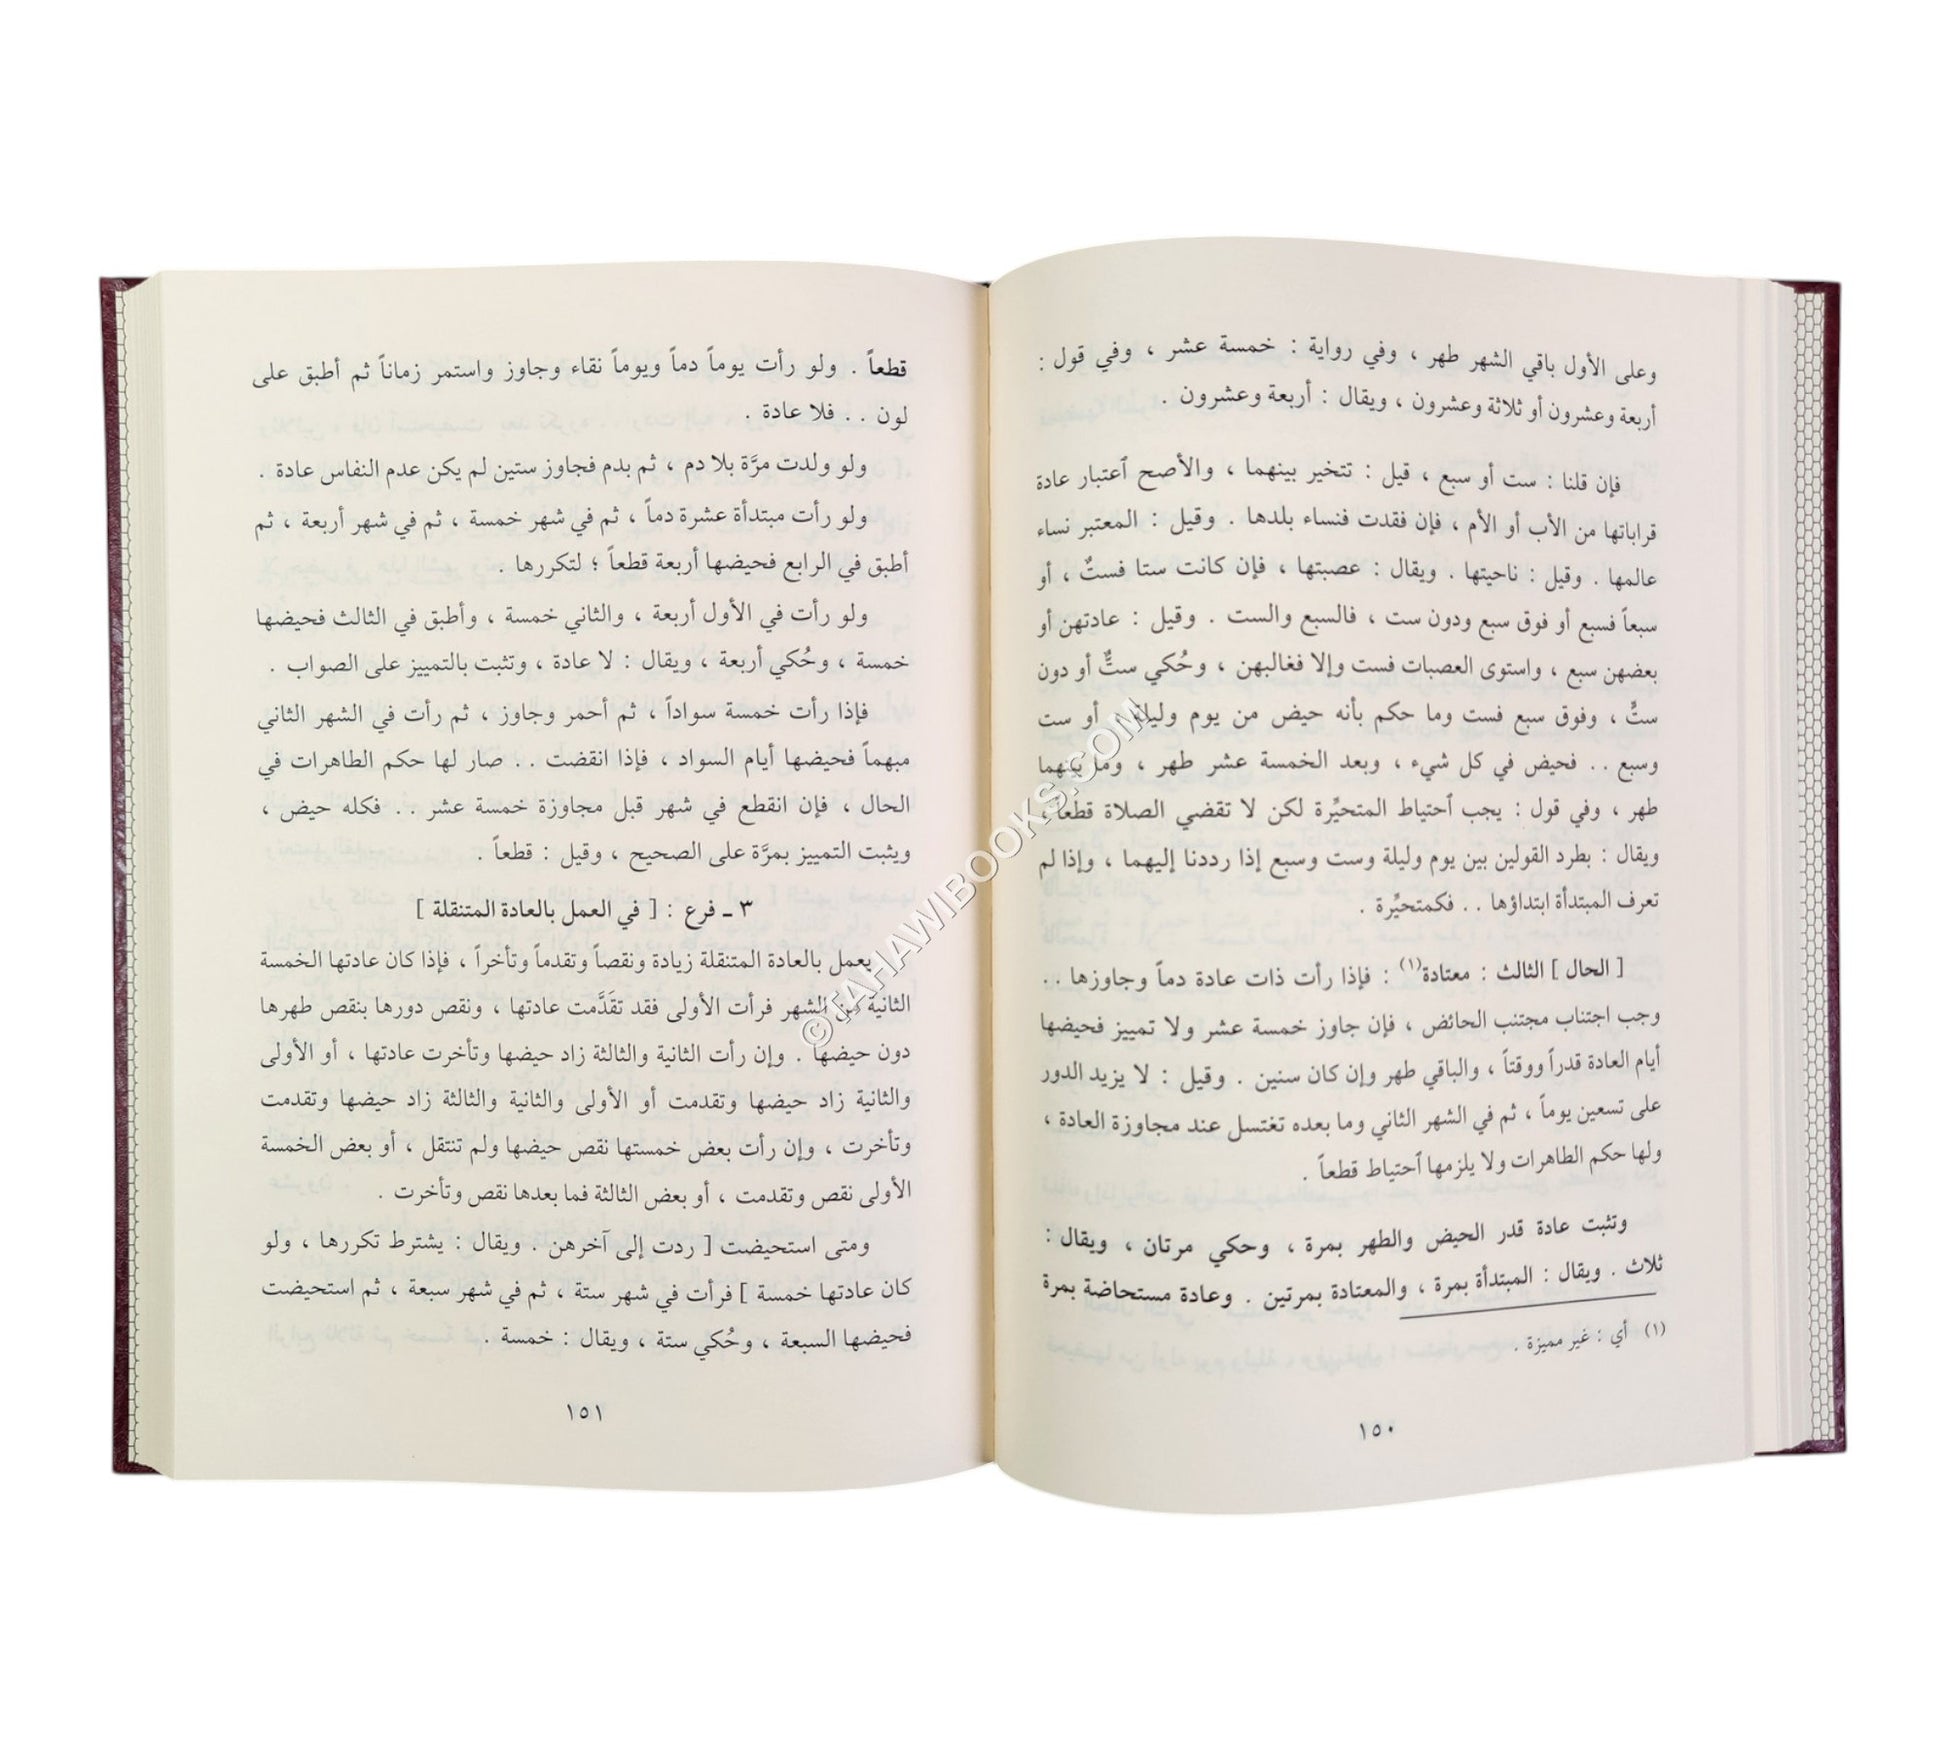 وعلى الأول باقي الشهر طهر ، وفي رواية : خمسة عشر ، وفي قول :
أربعة وعشرون أو ثلاثة وعشرون ، ويقال : أربعة وعشرون .
فإن قلنا : ست أو سبع ، قيل : تتخير بينهما ، والأصح ٱعتبار عادة
قراباتها من الأب أو الأم ، فإن فقدت فنساء بلدها . وقيل : المعتبر نساء
عالمها . وقيل : ناحيتها . ويقال : عصبتها ، فإن كانت ستا فستٌ ، أو
سبعاً فسبع أو فوق سبع ودون ست ، فالسبع والست . وقيل : عادتهن أو
بعضهن سبع ، واستوى العصبات فست وإلا فغالبهن ، وحُكي ستٌّ أو دون
ستٍّ ، وفوق سبع فست وما حكم بأنه حيض من يوم وليلة أو ست
وسبع .. فحيض في كل شيء ، وبعد الخمسة عشر طهر ، وما بينهما
طهر ، وفي قول : يجب ٱحتياط المتحيِّرة لكن لا تقضي الصلاة قطعاً ،
ويقال : بطرد القولين بين يوم وليلة وست وسبع إذا رددنا إليهما ، وإذا لم
تعرف المبتدأة ابتداؤها .. فكمتحيِّرة .
[ الحال ] الثالث : معتادة(١) : فإذا رأت ذات عادة دماً وجاوزها ..
وجب اجتناب مجتنب الحائض ، فإن جاوز خمسة عشر ولا تمييز فحيضها
أيام العادة قدراً ووقتاً ، والباقي طهر وإن كان سنين . وقيل : لا يزيد الدور
على تسعين يوماً ، ثم في الشهر الثاني وما بعده تغتسل عند مجاوزة العادة ،
ولها حكم الطاهرات ولا يلزمها ٱحتياط قطعاً .
وتثبت عادة قدر الحيض والطهر بمرة ، وحكي مرتان ، ويقال :
ثلاث . ويقال : المبتدأة بمرة ، والمعتادة بمرتين . وعادة مستحاضة بمرة
(١) أي : غير مميزة .
١٥٠
قطعاً . ولو رأت يوماً دماً ويوماً نقاء وجاوز واستمر زماناً ثم أطبق على
لون .. فلا عادة .
ولو ولدت مرَّة بلا دم ، ثم بدم فجاوز ستين لم يكن عدم النفاس عادة .
ولو رأت مبتدأة عشرة دماً ، ثم في شهر خمسة ، ثم في شهر أربعة ، ثم
أطبق في الرابع فحيضها أربعة قطعاً ؛ لتكررها .
ولو رأت في الأول أربعة ، والثاني خمسة ، وأطبق في الثالث فحيضها
خمسة ، وحُكي أربعة ، ويقال : لا عادة ، وتثبت بالتمييز على الصواب .
فإذا رأت خمسة سواداً ، ثم أحمر وجاوز ، ثم رأت في الشهر الثاني
مبهماً فحيضها أيام السواد ، فإذا انقضت .. صار لها حكم الطاهرات في
الحال ، فإن انقطع في شهر قبل مجاوزة خمسة عشر .. فكله حيض ،
ويثبت التمييز بمرَّة على الصحيح ، وقيل : قطعاً .
٣ ـ فرع : [ في العمل بالعادة المتنقلة ]
يعمل بالعادة المتنقلة زيادة ونقصاً وتقدماً وتأخراً ، فإذا كان عادتها الخمسة
الثانية من الشهر فرأت الأولى فقد تقَدَّمت عادتها ، ونقص دورها بنقص طهرها
دون حيضها . وإن رأت الثانية والثالثة زاد حيضها وتأخرت عادتها ، أو الأولى
والثانية زاد حيضها وتقدمت أو الأولى والثانية والثالثة زاد حيضها وتقدمت
وتأخرت ، وإن رأت بعض خمستها نقص حيضها ولم تنتقل ، أو بعض الخمسة
الأولى نقص وتقدمت ، أو بعض الثالثة فما بعدها نقص وتأخرت .
ومتى استحيضت [ ردت إلى آخرهن . ويقال : يشترط تكررها ، ولو
كان عادتها خمسة ] فرأت في شهر ستة ، ثم في شهر سبعة ، ثم استحيضت
فحيضها السبعة ، وحُكي ستة ، ويقال : خمسة .
١٥١
©TAHAWIBOOKS.COM